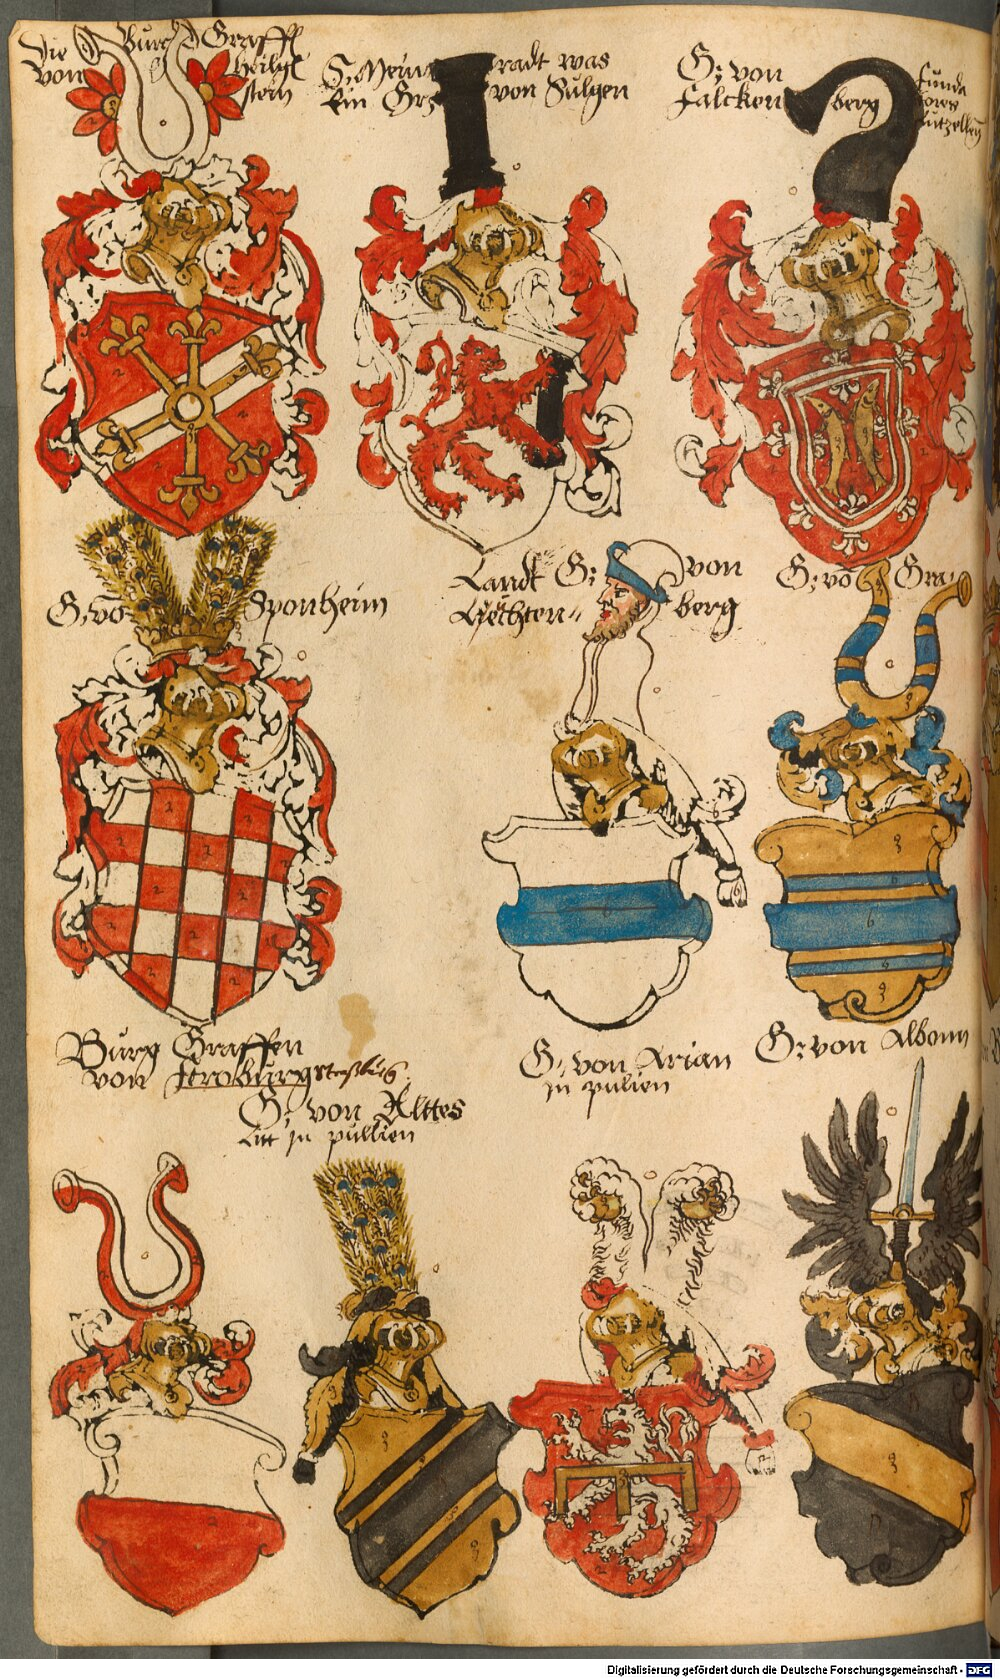 Die Burg Graff
von Heilge
stein
S. Mein radt was
Ein Grz von Sulgen
G: von
Falcken berg
funda
tores
Lutzelburg
G: vo Sponheim
Landt G: von
Leuchten berg
G: vo Gra
Burg Graffen
von Stroburg Straßburg
G: von Altes
in pullien
G: von Arian
in pulien
G: von Albonn
Digitalisierung gefördert durch die Deutsche Forschungsgemeinschaft - DFG